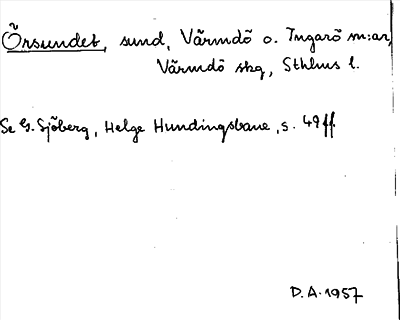 Örsundet, sund, Värmdö o. Ingarö m:ar,
Värmdö skg, Sthlms l.
Se G. Sjöberg, Helge Hundingsbane, s. 49 ff
D.A. 1957